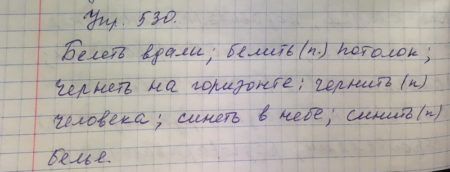 Упр. 530.
Белеть вдали; белить (п.) потолок;
чернеть на горизонте; чернить (п)
человека; синеть в небе; синить (п)
белье.